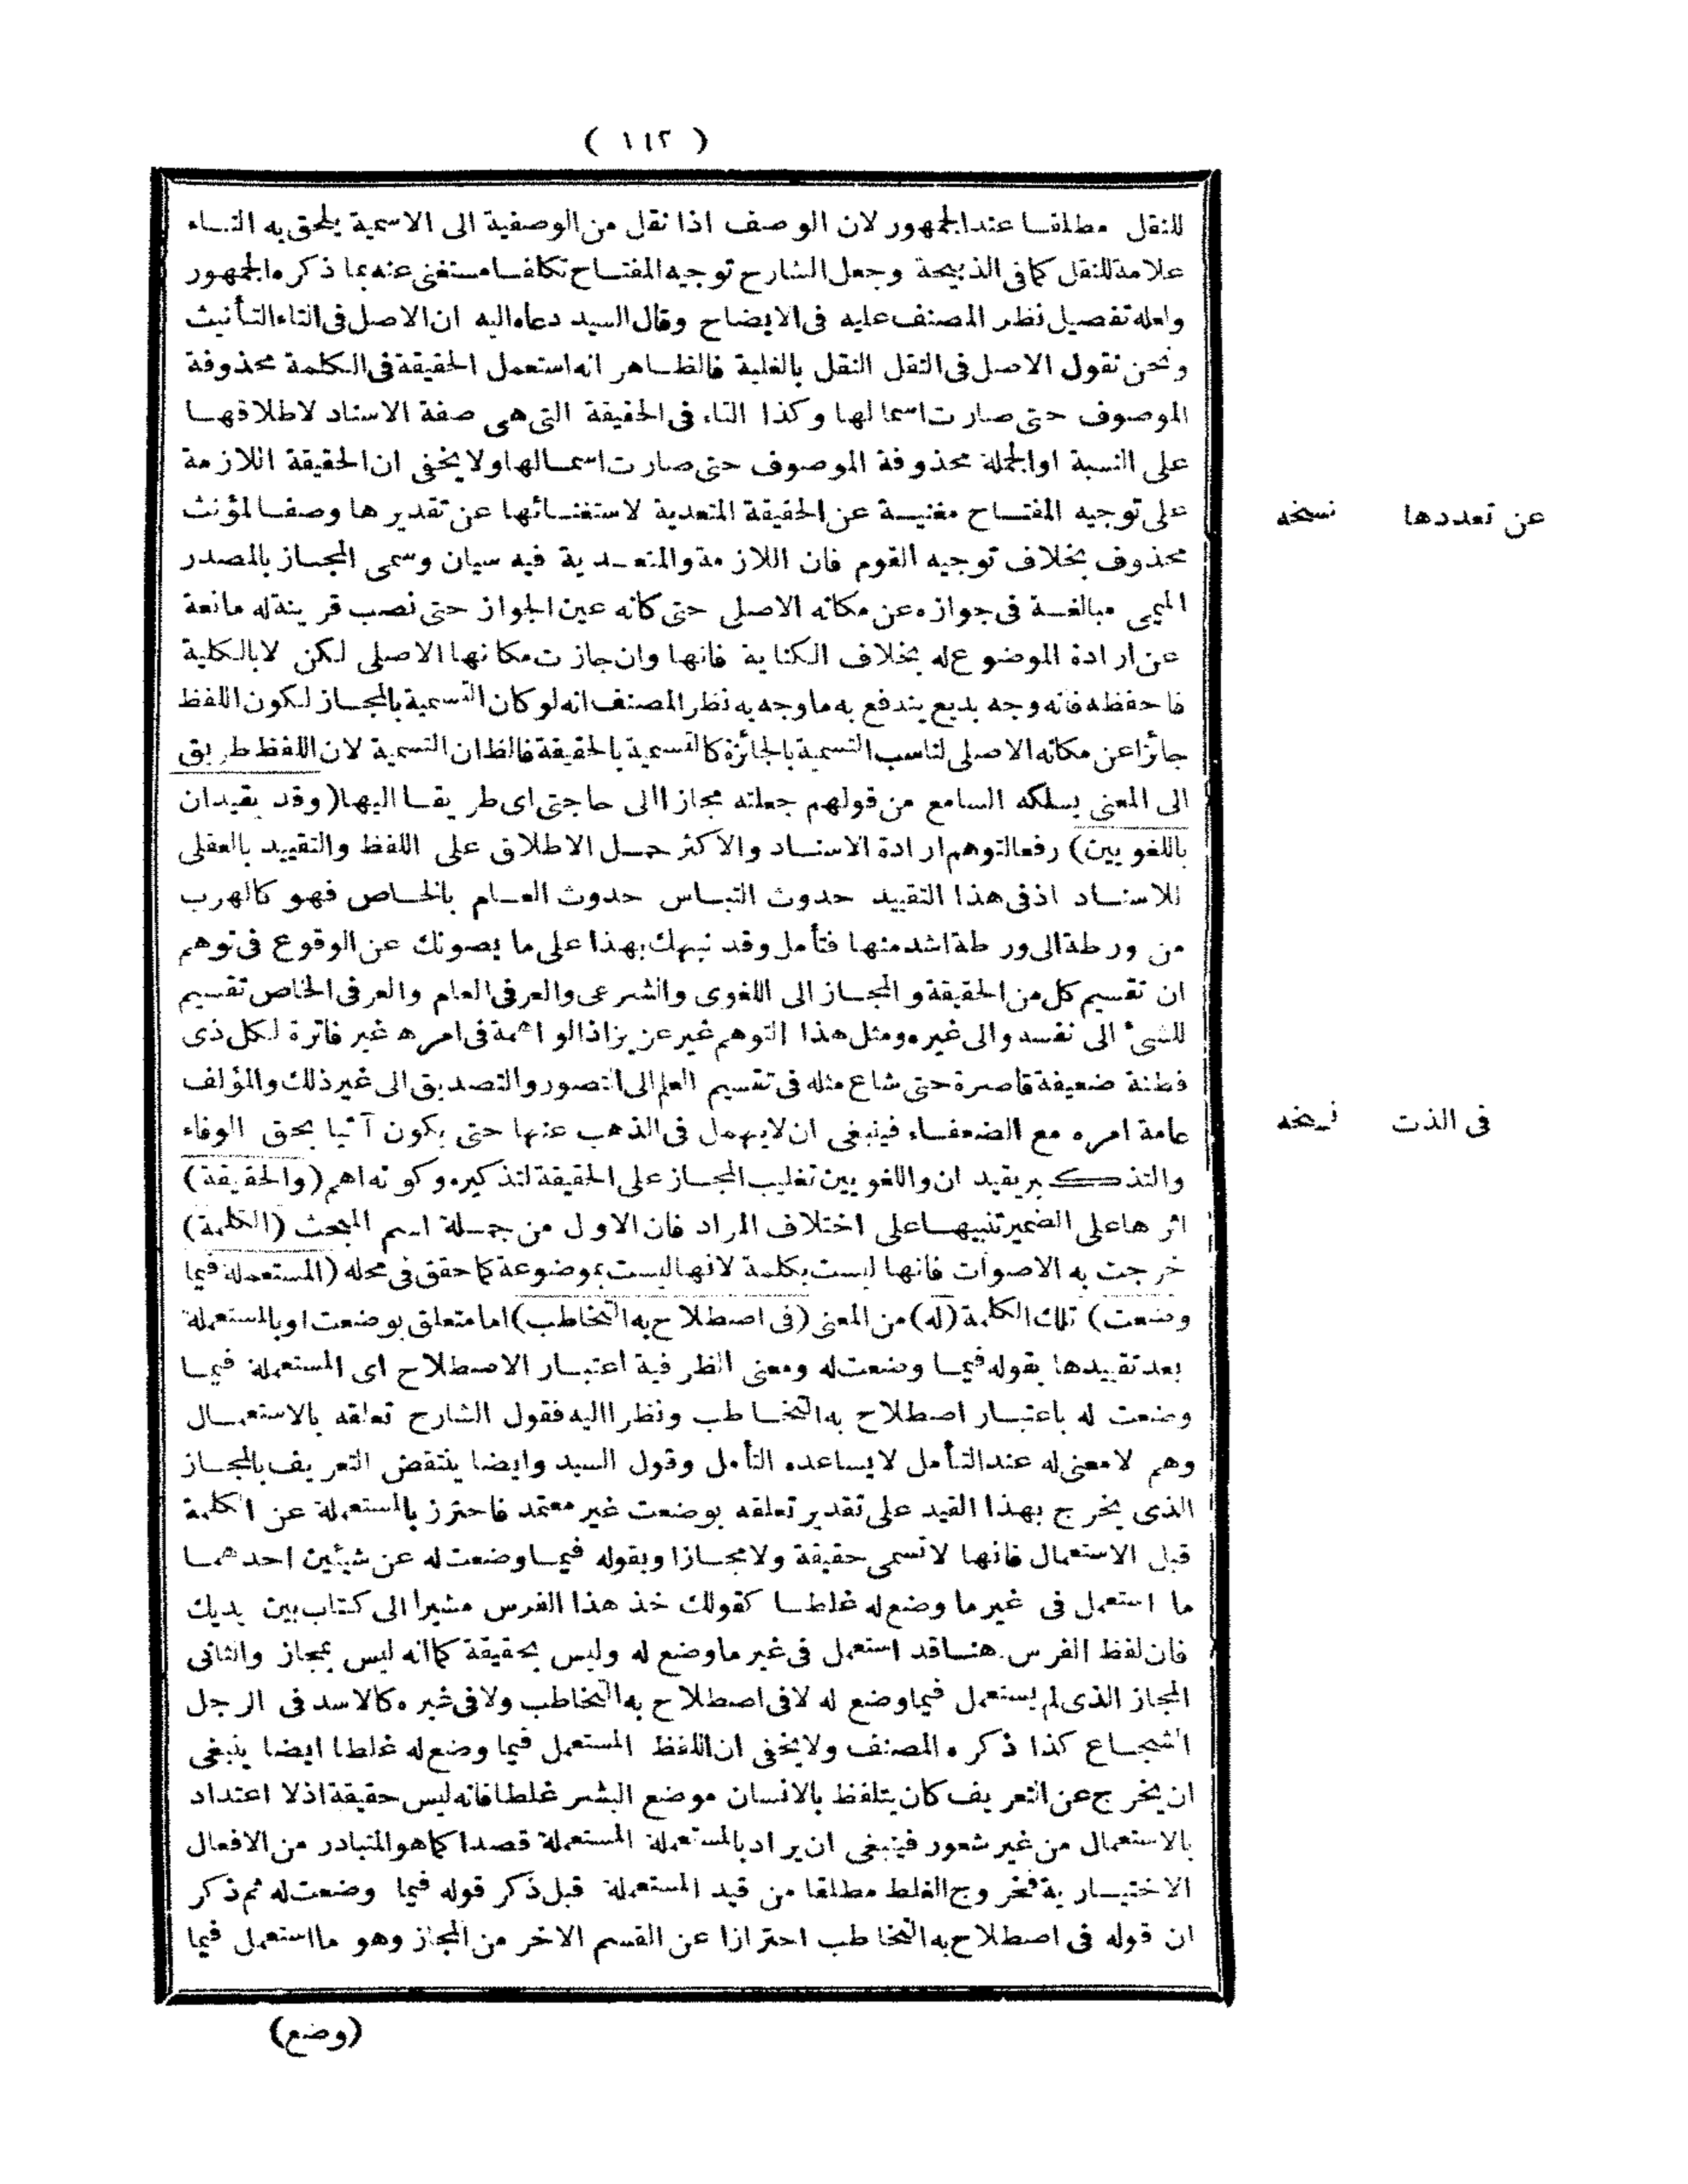 ( ١١٢ )
للنقل مطلقا عند الجمهور لان الوصف اذا نقل من الوصفية الى الاسمية يلحق به التاء
علامة للنقل كما فى الذبيحة وجعل الشارح توجيه المفتاح تكلفا مستغنى عنه بما ذكره الجمهور
ولعله تفصيل نظر المصنف عليه فى الايضاح وقال السيد دعاه اليه ان الاصل فى التاء التأنيث
ونحن نقول الاصل فى النقل النقل بالغلبة فالظاهر انه استعمل الحقيقة فى الكلمة محذوفة
الموصوف حتى صارت اسما لها وكذا التاء فى الحقيقة التى هى صفة الاسناد لاطلاقها
على النسبة او الجملة محذوفة الموصوف حتى صارت اسما لها ولا يخفى ان الحقيقة اللازمة
على توجيه المفتاح مغنية عن الحقيقة المتعدية لاستغنائها عن تقديرها وصفا لمؤنث
عن تعددها نسخه
محذوف بخلاف توجيه القوم فان اللازمة والمتعدية فيه سيان وسمى المجاز بالمصدر
الميمى مبالغة فى جوازه عن مكانه الاصلى حتى كانه عين الجواز حتى نصب قرينة له مانعة
عن ارادة الموضوع له بخلاف الكناية فانها وان جازت مكانها الاصلى لكن لا بالكلية
فاحفظه فانه وجه بديع يندفع به ما وجه به نظر المصنف انه لو كان التسمية بالمجاز لكون اللفظ
جائزا عن مكانه الاصلى لناسب التسمية بالجائزة كالتسمية بالحقيقة فالظ ان التسمية لان اللفظ طريق
الى المعنى يسلكه السامع من قولهم جعلته مجازا الى حاجتى اى طريقا اليها (وقد يقيدان
باللغويين) رفعا لتوهم ارادة الاسناد والاكثر حمل الاطلاق على اللفظ والتقييد بالعقلى
للاسناد اذ فى هذا التقييد حدوث التباس حدوث العام بالخاص فهو كالهرب
من ورطة الى ورطة اشد منها فتأمل وقد نبهك بهذا على ما يصونك عن الوقوع فى توهم
ان تقسيم كل من الحقيقة والمجاز الى اللغوى والشرعى والعرفى العام والعرفى الخاص تقسيم
للشئ الى نفسه والى غيره ومثل هذا التوهم غير عزيز اذ الواهمة فى امره غير فاترة لكل ذى
فطنة ضعيفة قاصرة حتى شاع مثله فى تقسيم العلم الى التصور والتصديق الى غير ذلك والمؤلف
عامة امره مع الضعفاء فينبغى ان لا يهمل فى الذهب عنها حتى يكون آتيا بحق الوفاء
فى الذت نسخه
والتذكير يقيد ان واللغويين تغليب المجاز على الحقيقة لتذكيره وكونه اهم (والحقيقة)
اثرها على الضمير تنبيها على اختلاف المراد فان الاول من جملة اسم المبحث (الكلمة)
خرجت به الاصوات فانها ليست بكلمة لانها ليست بموضوعة كما حقق فى محله (المستعملة فيما
وضعت) تلك الكلمة (له) من المعنى (فى اصطلاح به التخاطب) اما متعلق بوضعت او بالمستعملة
بعد تقييدها بقوله فيما وضعت له ومعنى الظرفية اعتبار الاصطلاح اى المستعملة فيما
وضعت له باعتبار اصطلاح به التخاطب ونظرا اليه فقول الشارح تعلقه بالاستعمال
وهم لا معنى له عند التأمل لا يساعده التأمل وقول السيد وايضا ينتقض التعريف بالمجاز
الذى يخرج بهذا القيد على تقدير تعلقه بوضعت غير معتمد فاحترز بالمستعملة عن الكلمة
قبل الاستعمال فانها لا تسمى حقيقة ولا مجازا وبقوله فيما وضعت له عن شيئين احدهما
ما استعمل فى غير ما وضع له غلطا كقولك خذ هذا الفرس مشيرا الى كتاب بين يديك
فان لفظ الفرس هنا قد استعمل فى غير ما وضع له وليس بحقيقة كما انه ليس بمجاز والثانى
المجاز الذى لم يستعمل فيما وضع له لا فى اصطلاح به التخاطب ولا فى غيره كالاسد فى الرجل
الشجاع كذا ذكره المصنف ولا يخفى ان اللفظ المستعمل فيما وضع له غلطا ايضا ينبغى
ان يخرج عن التعريف كان يتلفظ بالانسان موضع البشر غلطا فانه ليس حقيقة اذ لا اعتداد
بالاستعمال من غير شعور فينبغى ان يراد بالمستعملة المستعملة قصدا كما هو المتبادر من الافعال
الاختيارية فخروج الغلط مطلقا من قيد المستعملة قبل ذكر قوله فيما وضعت له ثم ذكر
ان قوله فى اصطلاح به التخاطب احترازا عن القسم الاخر من المجاز وهو ما استعمل فيما
(وضع)